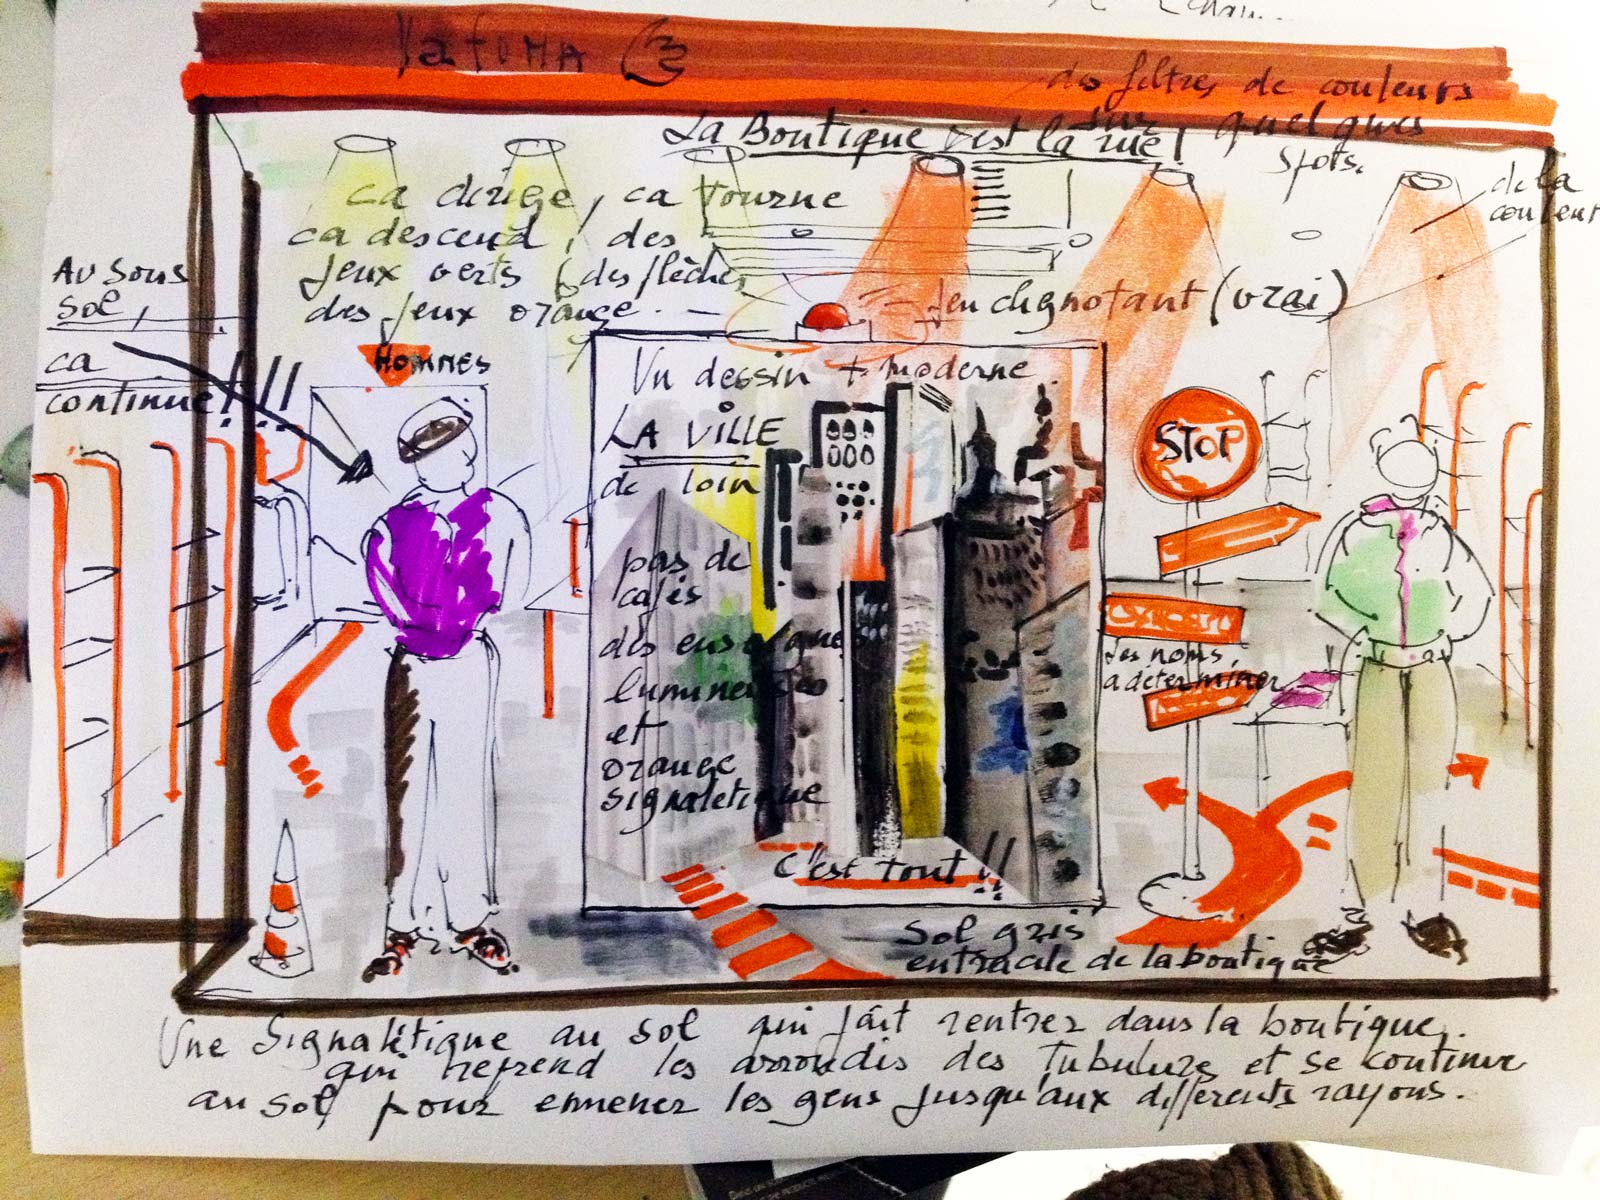 Lafuma
des filtres de couleurs
sur quelques
spots.
La Boutique c'est la rue !
de la
couleur
ca dirige, ca tourne
ca descend, des
feux verts, des flèches,
des feux orange...
Au sous
sol,
ca
continue !!!
feu clignotant (vrai)
HOMMES
Un dessin + moderne
LA VILLE
de loin
pas de
cafés
des enseignes
lumineuses
et
orange
signaletique
C'est tout !!
STOP
des noms,
a déterminer
Sol gris
de la boutique
Une Signalétique au sol qui fait rentrer dans la boutique.
qui reprend les arrondis des tubulures et se continue
au sol pour emmener les gens jusqu'aux différents rayons.